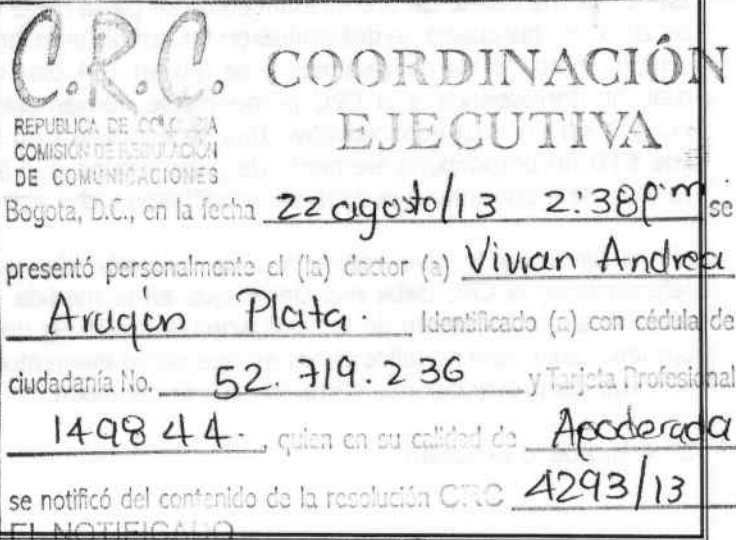 C.R.C.
REPUBLICA DE COLOMBIA
COMISIÓN DE REGULACIÓN
DE COMUNICACIONES
COORDINACIÓN
EJECUTIVA
Bogota, D.C., en la fecha 22 agosto/13 2:38pm se
presentó personalmente el (la) doctor (a) Vivian Andrea
Aragón Plata. Identificado (a) con cédula de
ciudadanía No. 52.719.236 y Tarjeta Profesional
149844., quien en su calidad de Apoderada
se notificó del contenido de la resolución CRC 4293/13
EL NOTIFICADO